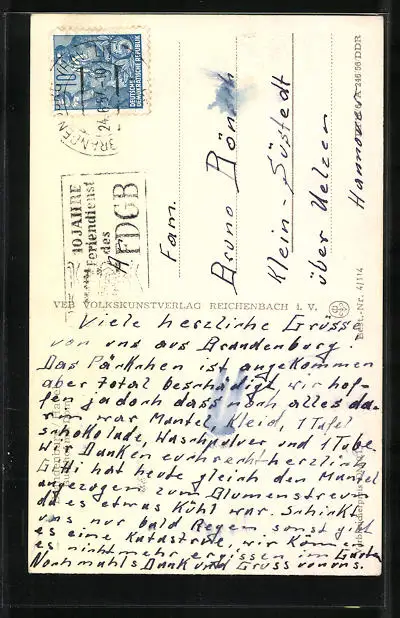 10
DEUTSCHE
DEMOKRATISCHE REPUBLIK
BRANDENBURG
24.6.57
10 JAHRE
Feriendienst
des
FDGB
Fam.
Bruno Rönn
Klein-Süstedt
über Uelzen
Hannover
VEB VOLKSKUNSTVERLAG REICHENBACH i. V.
Best.-Nr. 4/114
246 56 DDR
Viele herzliche Grüsse
von uns aus Brandenburg.
Das Päckchen ist angekommen
aber total beschädigt, wir hof-
fen jedoch dass noch alles da-
rin war Mantel, Kleid, 1 Tafel
schokolade, Waschpulver und 1 Tube.
Wir Danken euch recht herzlich
hat heute gleich den Mantel
angezogen zum Blumenstreun
da es etwas Kühl war. Schickt
uns nur bald Regen sonst gibt
es eine Katastrofe, wir können
es nicht mehr ergissen im Garten
Nochmahls Dank und Gruss von uns.